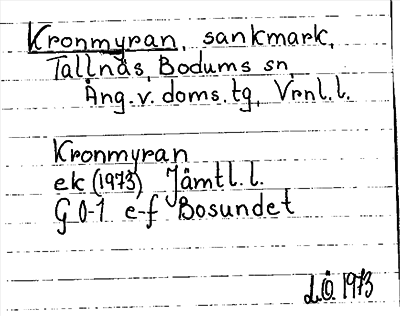 Kronmyran, sankmark,
Tallnäs, Bodums sn,
Ång. v. doms. tg, Vrnl. l.
Kronmyran
ek (1973) Jämtl. l.
G 0-1 e-f Bosundet
L.Ö. 1973